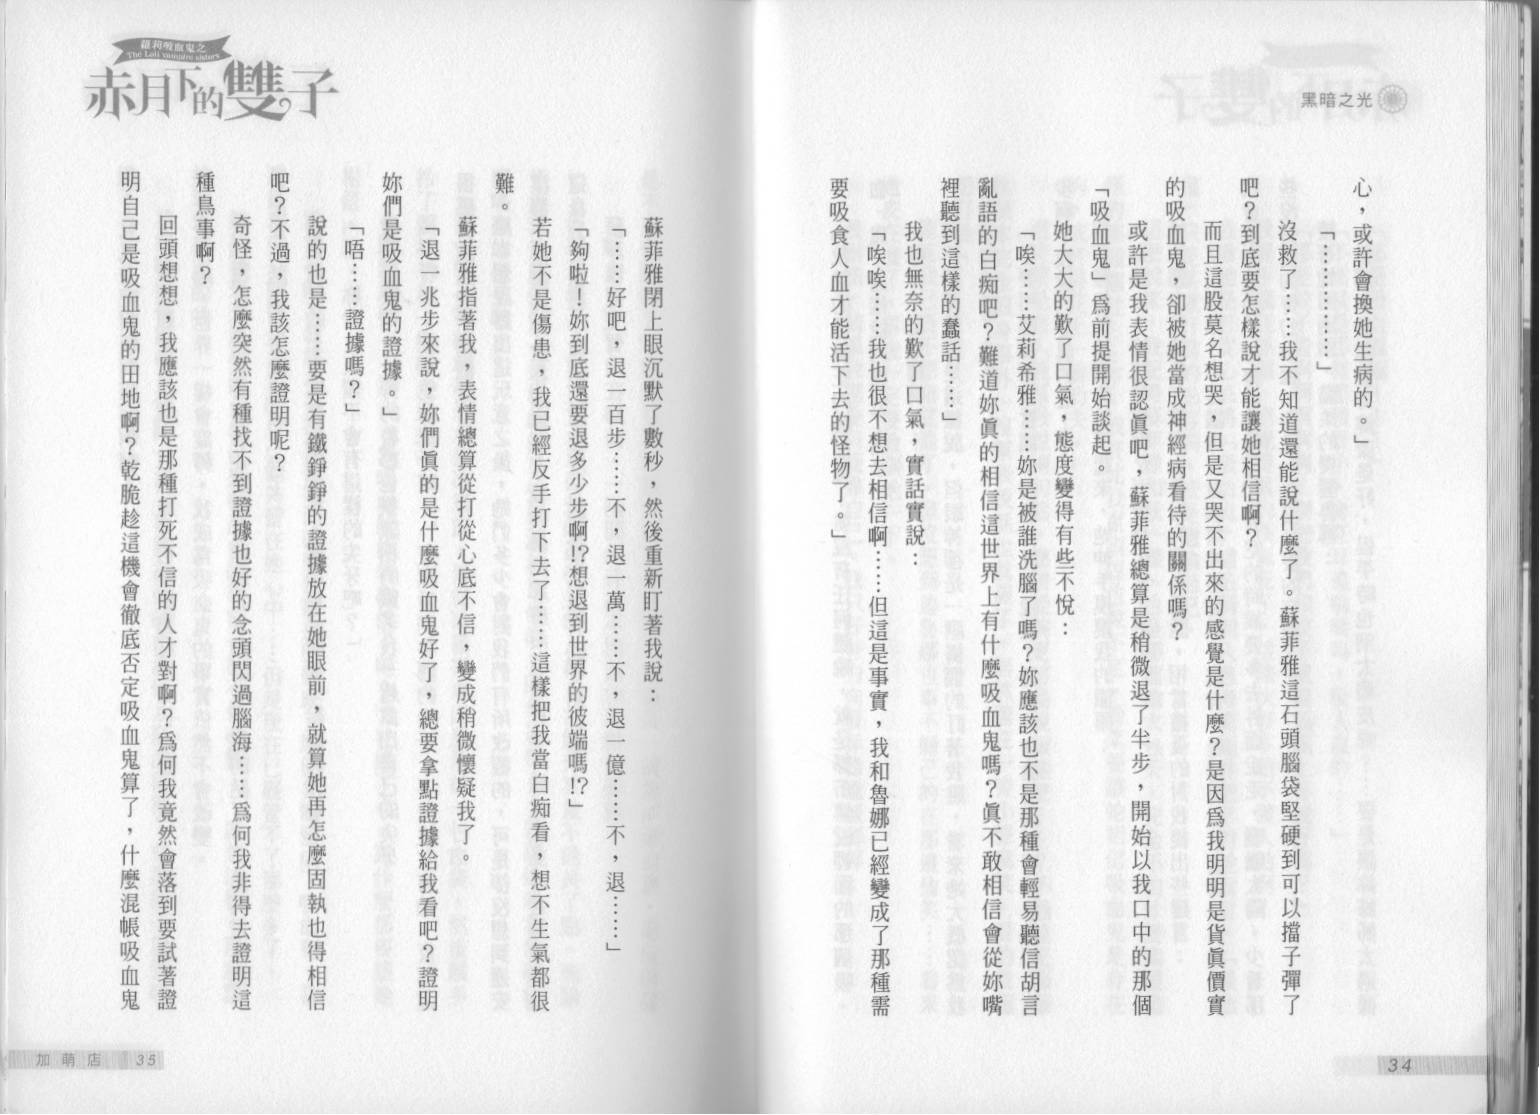 黑暗之光
心，或許會換她生病的。」
「…………」
沒救了……我不知道還能說什麼了。蘇菲雅這石頭腦袋堅硬到可以擋子彈了
吧？到底要怎樣說才能讓她相信啊？
而且這股莫名想哭，但是又哭不出來的感覺是什麼？是因為我明明是貨真價實
的吸血鬼，卻被她當成神經病看待的關係嗎？
或許是我表情很認真吧，蘇菲雅總算是稍微退了半步，開始以我口中的那個
「吸血鬼」為前提開始談起。
她大大的歎了口氣，態度變得有些不悅：
「唉……艾莉希雅……妳是被誰洗腦了嗎？妳應該也不是那種會輕易聽信胡言
亂語的白痴吧？難道妳真的相信這世界上有什麼吸血鬼嗎？真不敢相信會從妳嘴
裡聽到這樣的蠢話……」
我也無奈的歎了口氣，實話實說：
「唉唉……我也很不想去相信啊……但這是事實，我和魯娜已經變成了那種需
要吸食人血才能活下去的怪物了。」
34
蘿莉吸血鬼之
The Loli vampire sisters
赤月下的雙子
蘇菲雅閉上眼沉默了數秒，然後重新盯著我說：
「……好吧，退一百步……不，退一萬……不，退一億……不，退……」
「夠啦！妳到底還要退多少步啊!?想退到世界的彼端嗎!?」
若她不是傷患，我已經反手打下去了……這樣把我當白痴看，想不生氣都很
難。
蘇菲雅指著我，表情總算從打從心底不信，變成稍微懷疑我了。
「退一兆步來說，妳們真的是什麼吸血鬼好了，總要拿點證據給我看吧？證明
妳們是吸血鬼的證據。」
「唔……證據嗎？」
說的也是……要是有鐵錚錚的證據放在她眼前，就算她再怎麼固執也得相信
吧？不過，我該怎麼證明呢？
奇怪，怎麼突然有種找不到證據也好的念頭閃過腦海……為何我非得去證明這
種鳥事啊？
回頭想想，我應該也是那種打死不信的人才對啊？為何我竟然會落到要試著證
明自己是吸血鬼的田地啊？乾脆趁這機會徹底否定吸血鬼算了，什麼混帳吸血鬼
加萌店 35